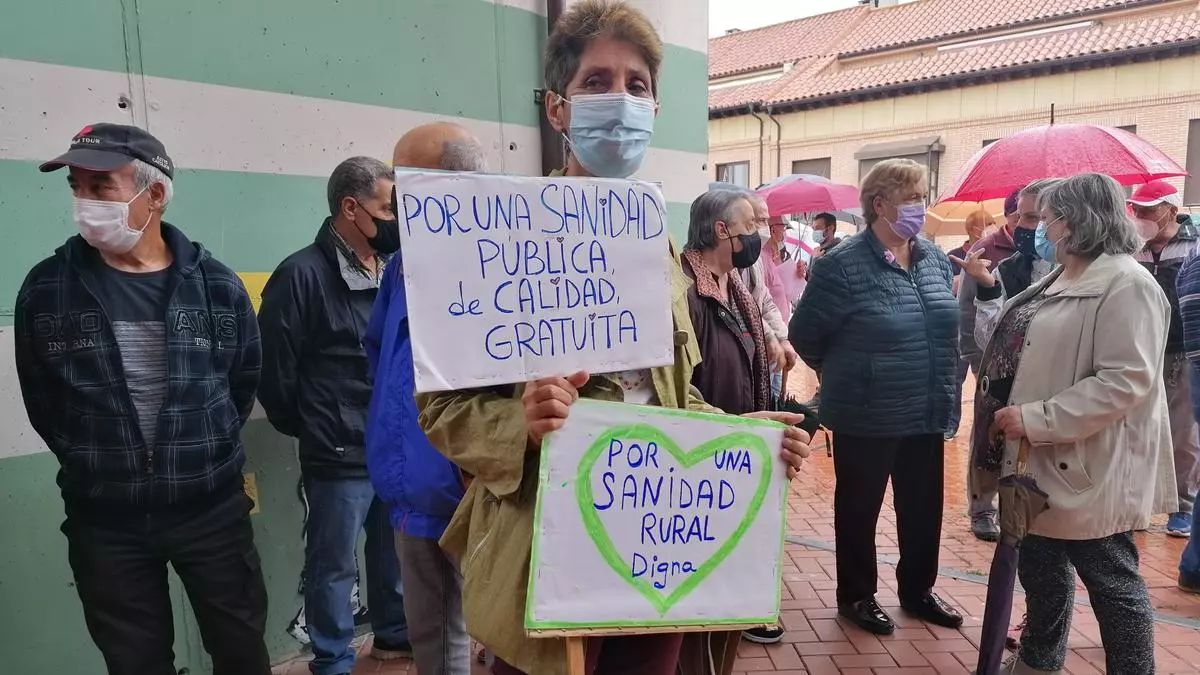 POR UNA SANiDAD
PÚBLiCA,
de CALiDAD,
GRATUiTA
POR UNA
SANiDAD
RURAL
Digna
TOUR